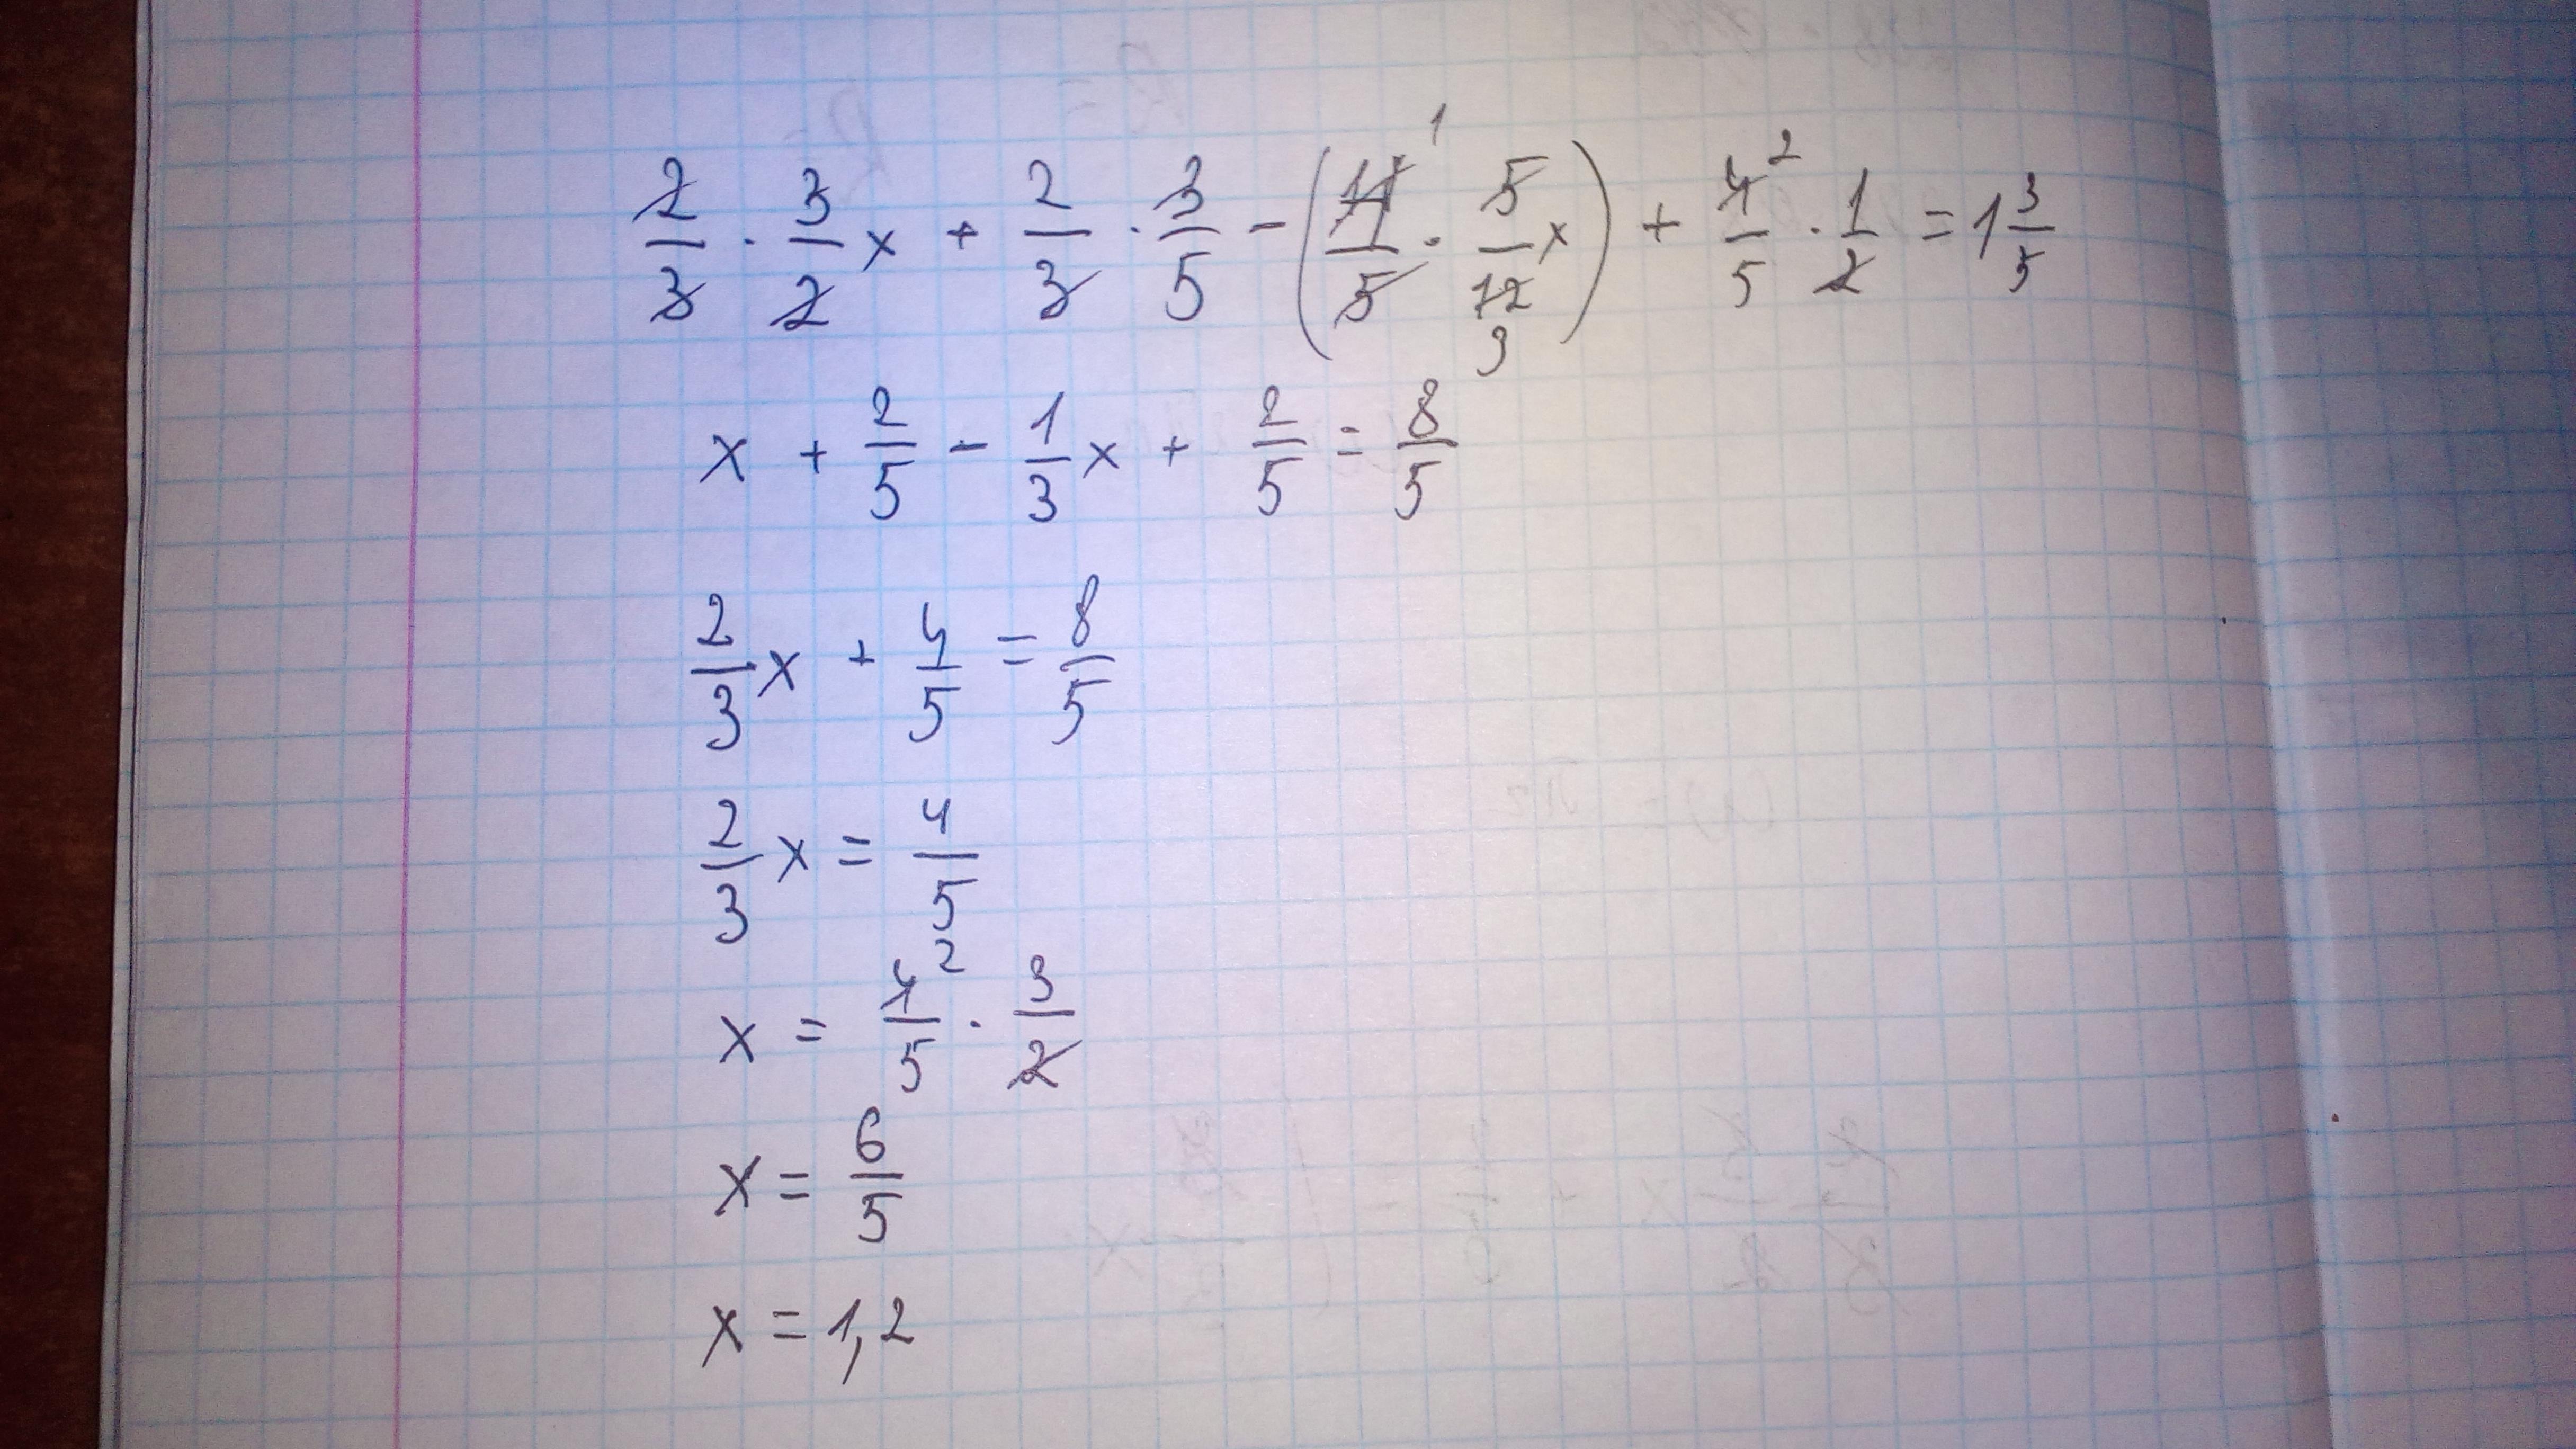 2/3 · 3/2 x + 2/3 · 3/5 - (4/5 · 5/12 x) + 4/5 · 1/2 = 1 3/5
x + 2/5 - 1/3 x + 2/5 = 8/5
2/3 x + 4/5 = 8/5
2/3 x = 4/5
x = 4/5 · 3/2
x = 6/5
x = 1,2